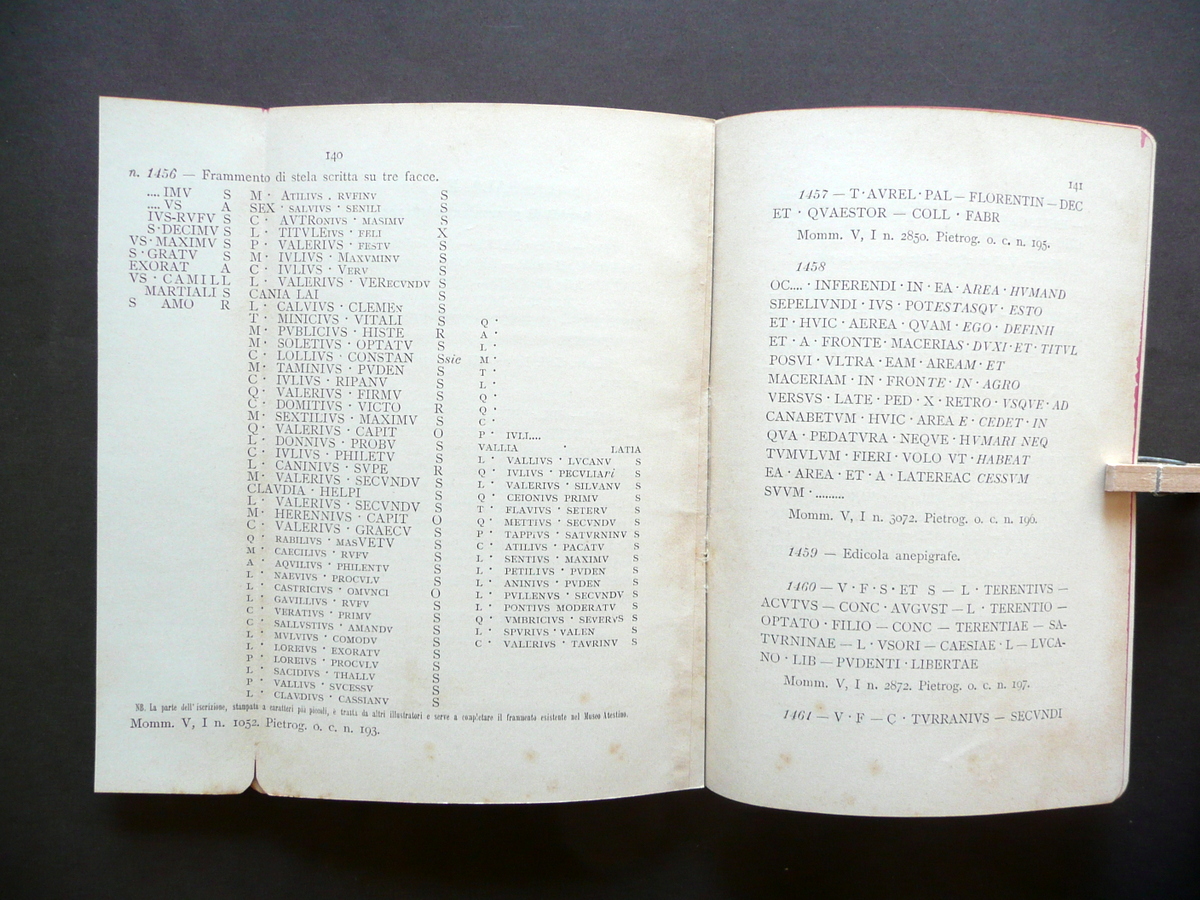 140
n. 1456 — Frammento di stela scritta su tre facce.
.... IMV S
.... VS A
IVS-RVFV S
S·DECIMV S
VS·MAXIMV S
S·GRATV S
EXORAT A
VS · CAMILL
MARTIALI S
S AMO R
M · ATILIVS . RVFINV S
SEX · SALVIVS · SENILI S
C · AVTRONIVS · MASIMV S
L · TITVLEIVS · FELI X
P · VALERIVS · FESTV S
M · IVLIVS · MAXVMINV S
C · IVLIVS · VERV S
L · VALERIVS · VERECVNDV S
CANIA LAI S
L · CALVIVS · CLEMEN S
T · MINICIVS · VITALI S
M · PVBLICIVS · HISTE R
M · SOLETIVS · OPTATV S
C · LOLLIVS · CONSTAN Ssic
M · TAMINIVS · PVDEN S
C · IVLIVS · RIPANV S
Q · VALERIVS · FIRMV S
C · DOMITIVS · VICTO R
M · SEXTILIVS · MAXIMV S
Q · VALERIVS · CAPIT O
L · DONNIVS · PROBV S
C · IVLIVS · PHILETV S
L · CANINIVS · SVPE R
M · VALERIVS · SECVNDV S
CLAVDIA · HELPI S
L · VALERIVS · SECVNDV S
M · HERENNIVS · CAPIT O
C · VALERIVS · GRAECV S
Q · RABILIVS · MASVETV S
M · CAECILIVS · RVFV S
A · AQVILIVS · PHILENTV S
L · NAEVIVS · PROCVLV S
L · CASTRICIVS · OMVNCI O
L · GAVILLIVS · RVFV S
C · VERATIVS · PRIMV S
C · SALLVSTIVS · AMANDV S
L · MVLVIVS · COMODV S
L · LOREIVS · EXORATV S
P · LOREIVS · PROCVLV S
L · SACIDIVS · THALLV S
P · VALLIVS · SVCESSV S
L · CLAVDIVS · CASSIANV S
Q ·
A ·
L ·
M ·
T ·
L ·
Q ·
Q ·
C ·
P · IVLI....
VALLIA · LATIA
L · VALLIVS · LVCANV S
Q · IVLIVS · PECVLIARI S
L · VALERIVS · SILVANV S
Q · CEIONIVS PRIMV S
T · FLAVIVS · SETERV S
Q · METTIVS · SECVNDV S
P · TAPPIVS · SATVRNINV S
C · ATILIVS · PACATV S
L · SENTIVS · MAXIMV S
L · PETILIVS · PVDEN S
L · ANINIVS · PVDEN S
L · PVLLENVS · SECVNDV S
L · PONTIVS MODERATV S
Q · VMBRICIVS · SEVERVS S
L · SPVRIVS · VALEN S
C · VALERIVS · TAVRINV S
NB. La parte dell'iscrizione, stampata a caratteri più piccoli, è tratta da altri illustratori e serve a completare il frammento esistente nel Museo Atestino.
Momm. V, I n. 1052. Pietrog. o. c. n. 193.
141
1457 — T·AVREL·PAL — FLORENTIN — DEC
ET · QVAESTOR — COLL · FABR
Momm. V, I n. 2850. Pietrog. o. c. n. 195.
1458
OC.... · INFERENDI · IN · EA · AREA · HVMAND
SEPELIVNDI · IVS · POTESTASQV · ESTO
ET · HVIC · AEREA · QVAM · EGO · DEFINII
ET · A · FRONTE · MACERIAS · DVXI · ET · TITVL
POSVI · VLTRA · EAM · AREAM · ET
MACERIAM · IN · FRONTE · IN · AGRO
VERSVS · LATE · PED · X · RETRO · VSQVE · AD
CANABETVM · HVIC · AREA E · CEDET · IN
QVA · PEDATVRA · NEQVE · HVMARI NEQ
TVMVLVM · FIERI · VOLO VT · HABEAT
EA · AREA · ET · A · LATEREAC CESSVM
SVVM · .........
Momm. V, I n. 3072. Pietrog. o. c. n. 196.
1459 — Edicola anepigrafe.
1460 — V · F · S · ET S — L · TERENTIVS —
ACVTVS — CONC · AVGVST — L · TERENTIO —
OPTATO · FILIO — CONC — TERENTIAE — SA-
TVRNINAE — L · VSORI — CAESIAE · L — LVCA-
NO · LIB — PVDENTI · LIBERTAE
Momm. V, I n. 2872. Pietrog. o. c. n. 197.
1461 — V · F — C · TVRRANIVS — SECVNDI